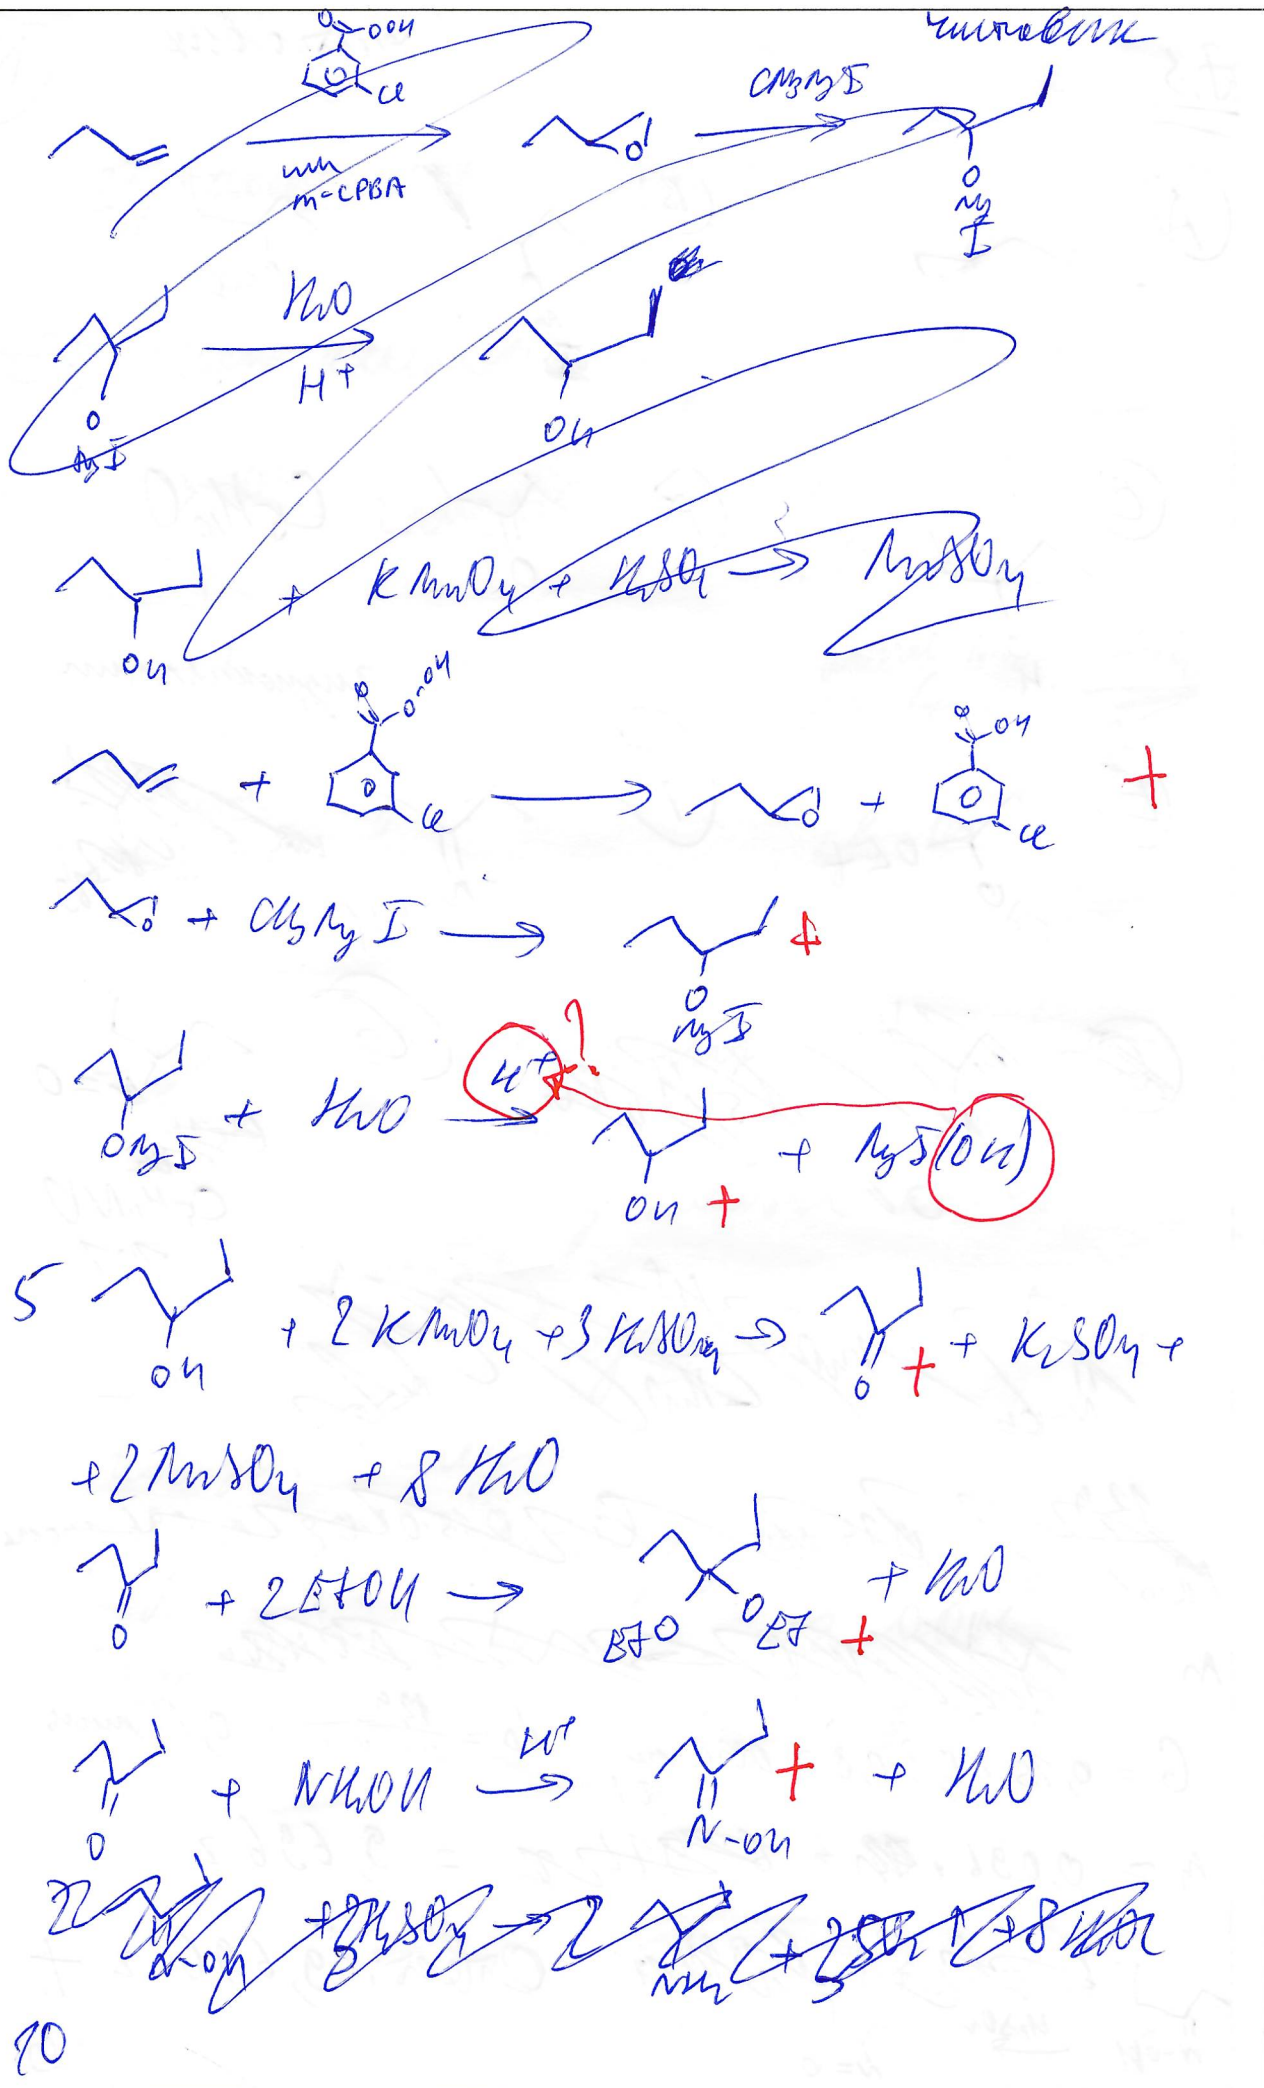 чистовик
O OOH
Cl
m-CPBA
O
CH3MgI
O
Mg
I
H2O
H+
O
MgI
OH
OH
+ KMnO4 + H2SO4 → MnSO4
+ O O-OH Cl → O + O OH Cl +
O + CH3MgI → O MgI +
OMgI + H2O H+ → OH + MgI(OH)
?
+
5 OH + 2 KMnO4 + 3 H2SO4 → O + K2SO4 +
+
+ 2 MnSO4 + 8 H2O
O + 2 EtOH → EtO OEt + H2O
+
O + NH2OH H+ → N-OH + H2O
+
10